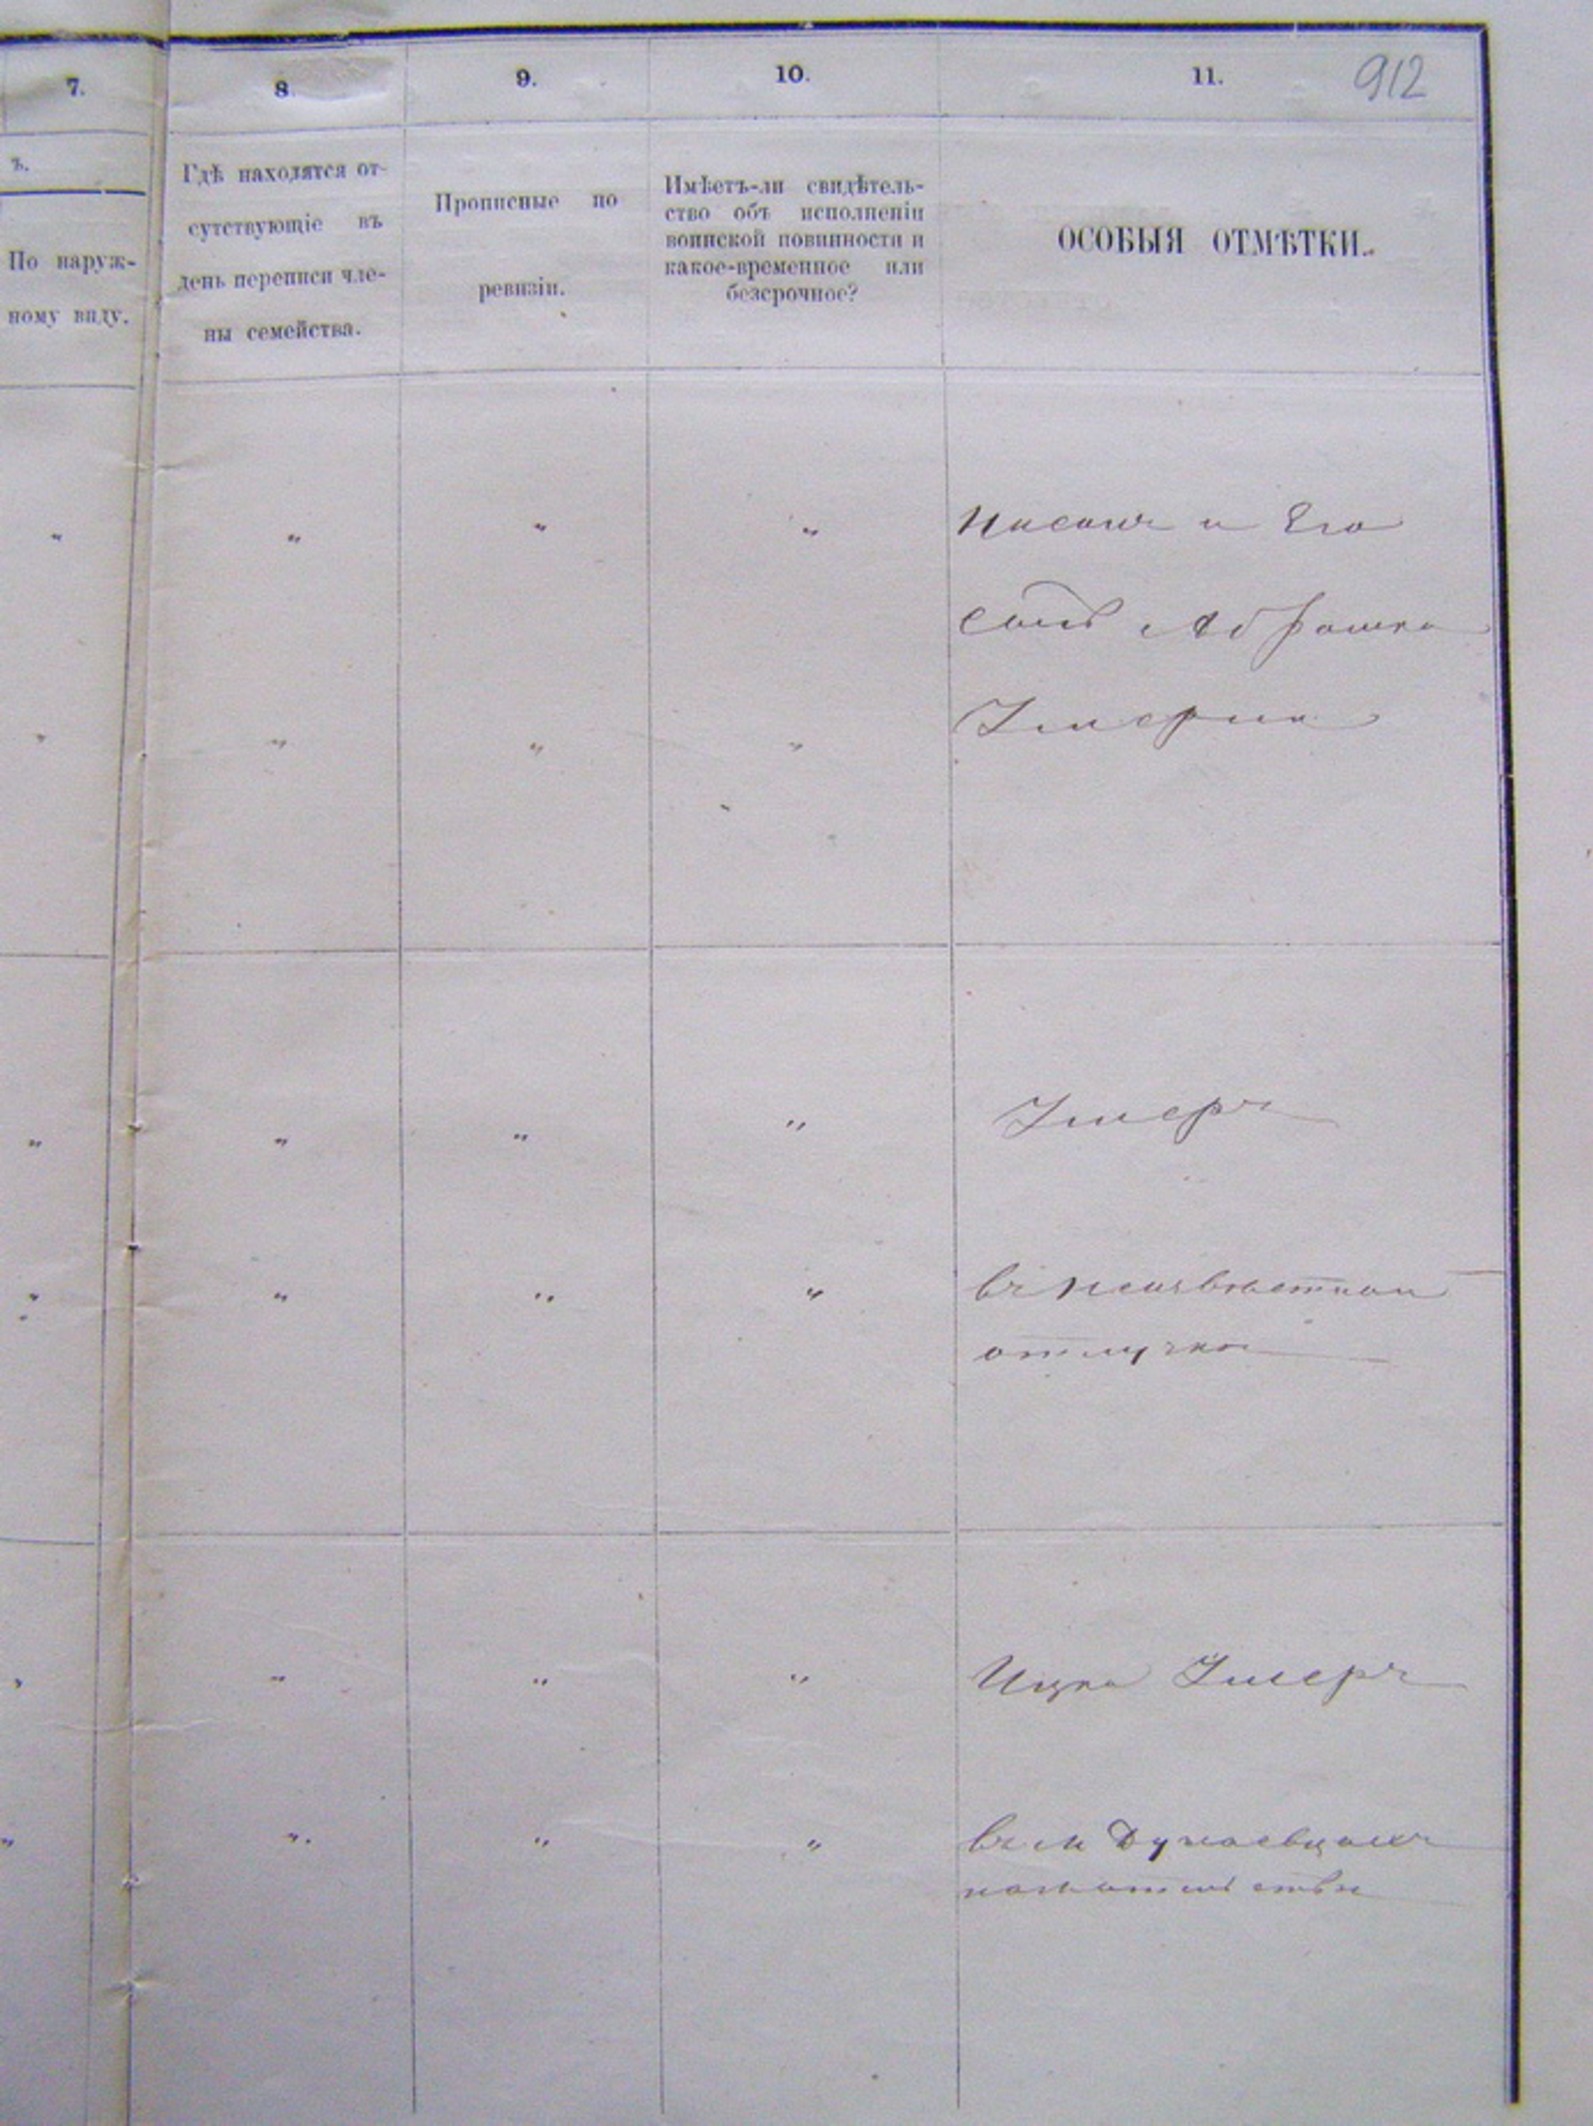 7.
8.
9.
10.
11.
912
ъ.
По наруж-
ному виду.
Гдѣ находятся от-
сутствующіе въ
день переписи чле-
ны семейства.
Прописные по
ревизіи.
Имѣетъ-ли свидѣтель-
ство объ исполненіи
воинской повинности и
какое-временное или
безсрочное?
ОСОБЫЯ ОТМѢТКИ.
" " " " Нисонъ и Его
сынъ Абрашка
" " " " Умерли
" " " " Умеръ
" " " " въ Неизвѣстной
отлучкѣ
" " " " Ицко Умеръ
" " " " въ м Дунаевцахъ